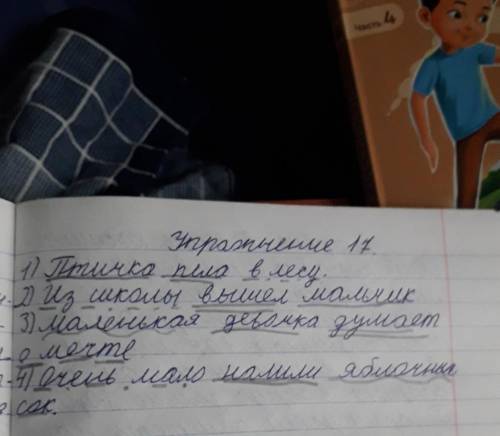 Часть 4
Упражнение 17.
1) Птичка пела в лесу.
2) Из школы вышел мальчик
3) маленькая девочка думает
о мечте
4) очень мало налили яблочный
сок.